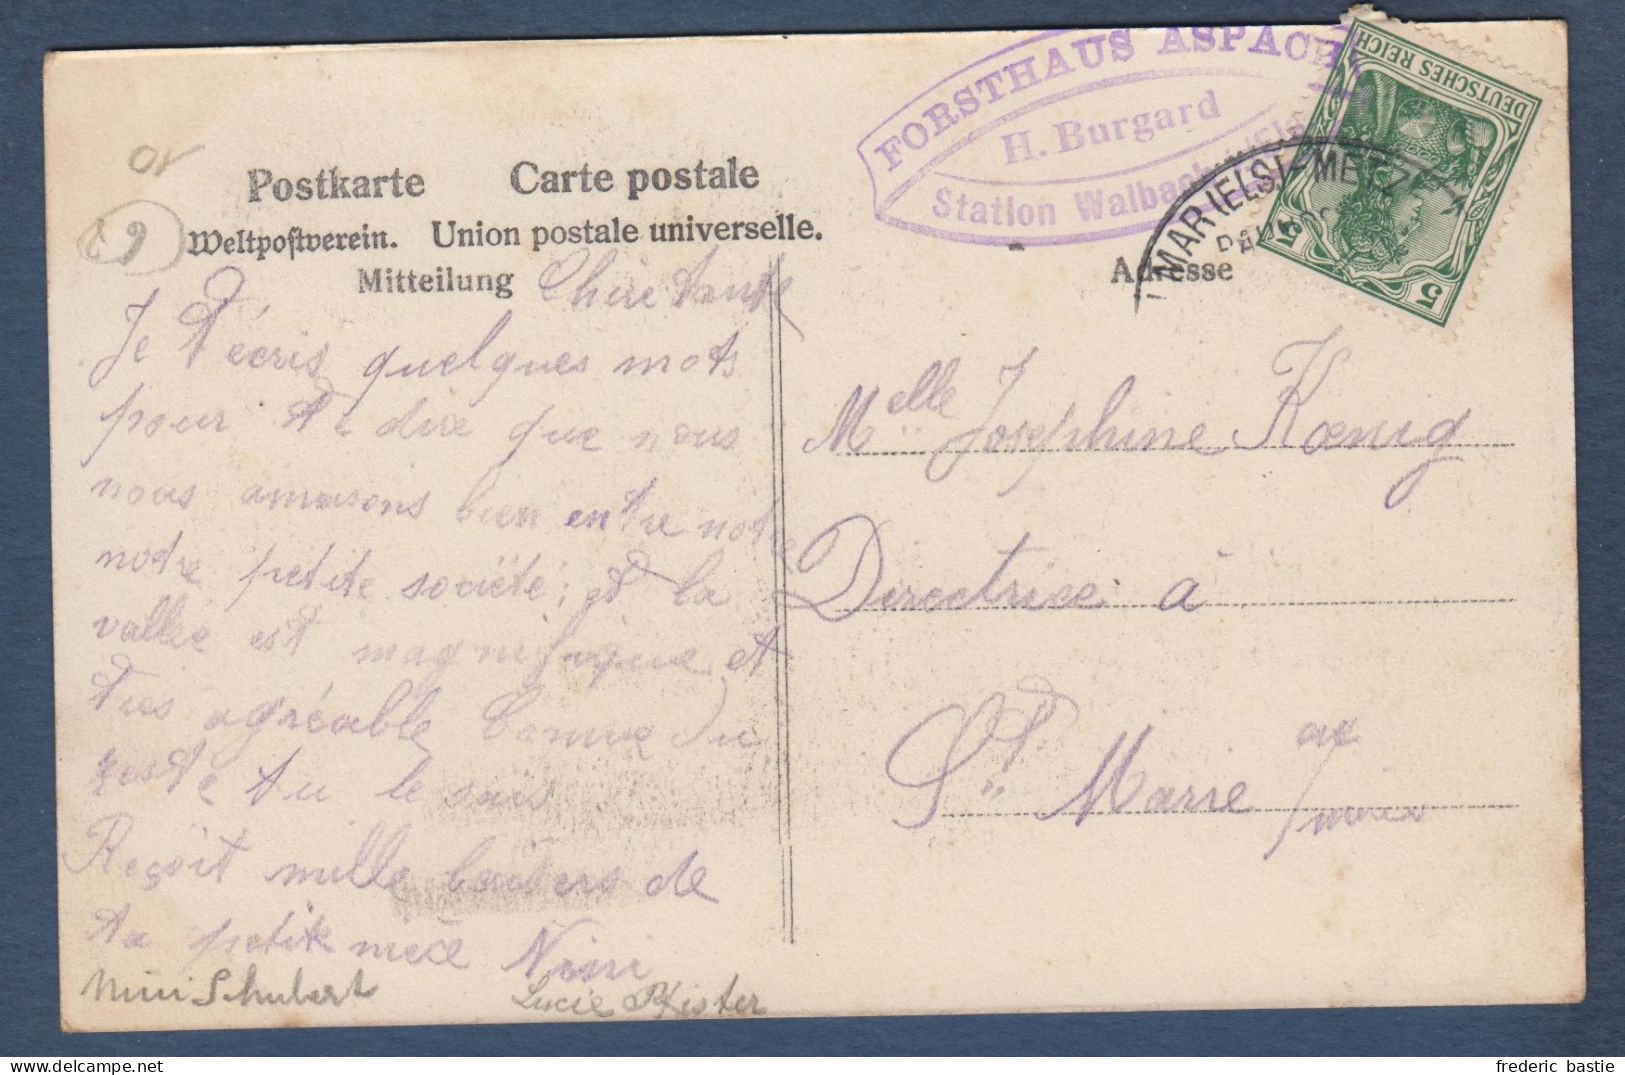 FORSTHAUS ASPACH
H. Burgard
Station Walbach
DEUTSCHES REICH
5 5
MARI(ELS)-METZ
Postkarte Carte postale
Weltpostverein. Union postale universelle.
Mitteilung
Adresse
Chère tante
Je t'écris quelques mots
pour te dire que nous
nous amusons bien entre notre
notre petite société; et la
vallée est magnifique et
très agréable comme du
reste tu le sais
Reçoit mille baisers de
ta petite niéce Nini
Nini Schubert Lucie Pfister
Melle Josephine Kœnig
Directrice à
Ste Marie aux
mines
frederic bastie